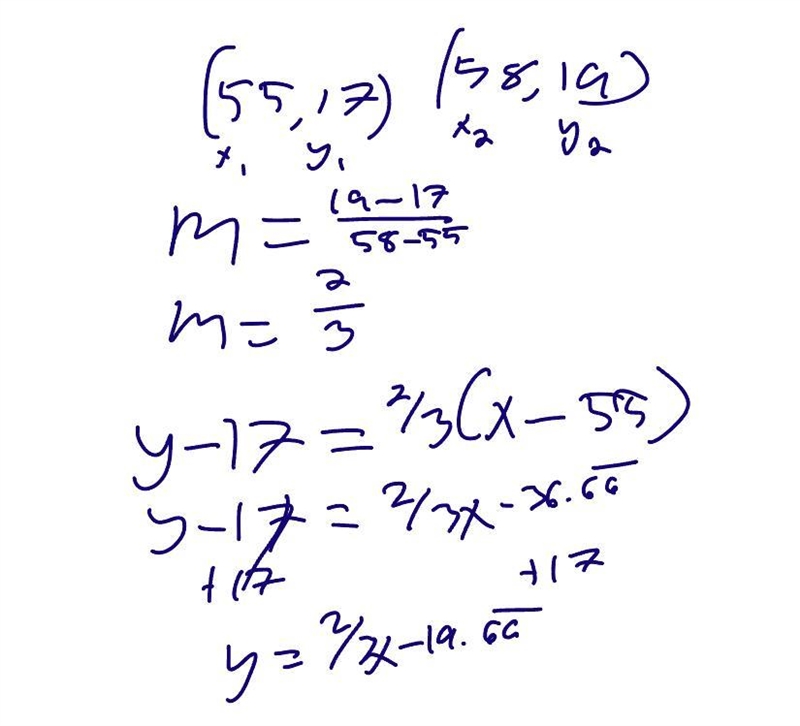 (55, 17) (58, 19)
x₁ y₁ x₂ y₂
m = 19-17/58-55
m = 2/3
y-17 = 2/3(x-55)
y-17 = 2/3x-36.6̅6̅
+17 +17
y = 2/3x-19.6̅6̅